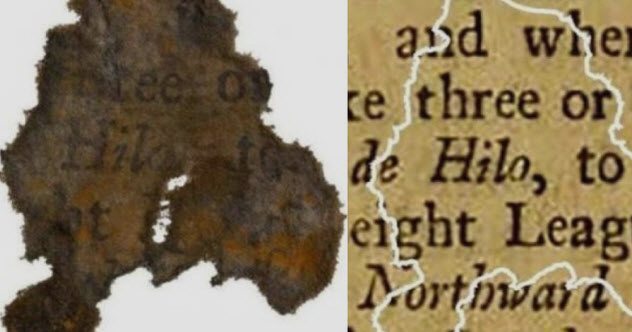 ree or
Hilo, to
ht
and when
ke three or
de Hilo, to
eight Leag
Northward